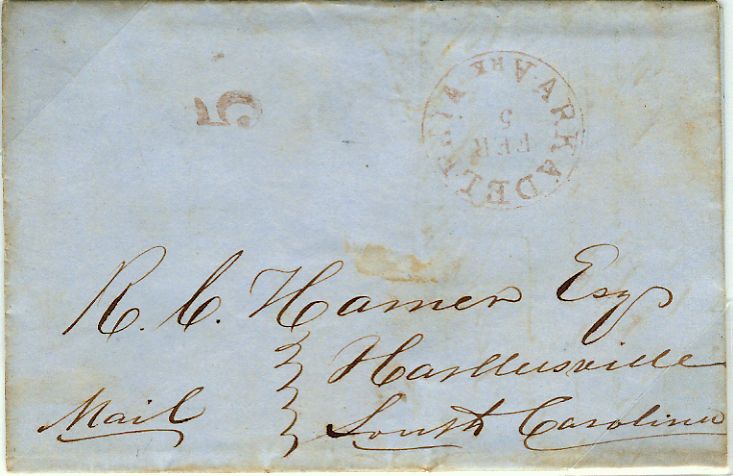 5
ARKADELPHIA ARK
FEB
5
R. C. Hamer Esq
Harlleesville
Mail South Carolina